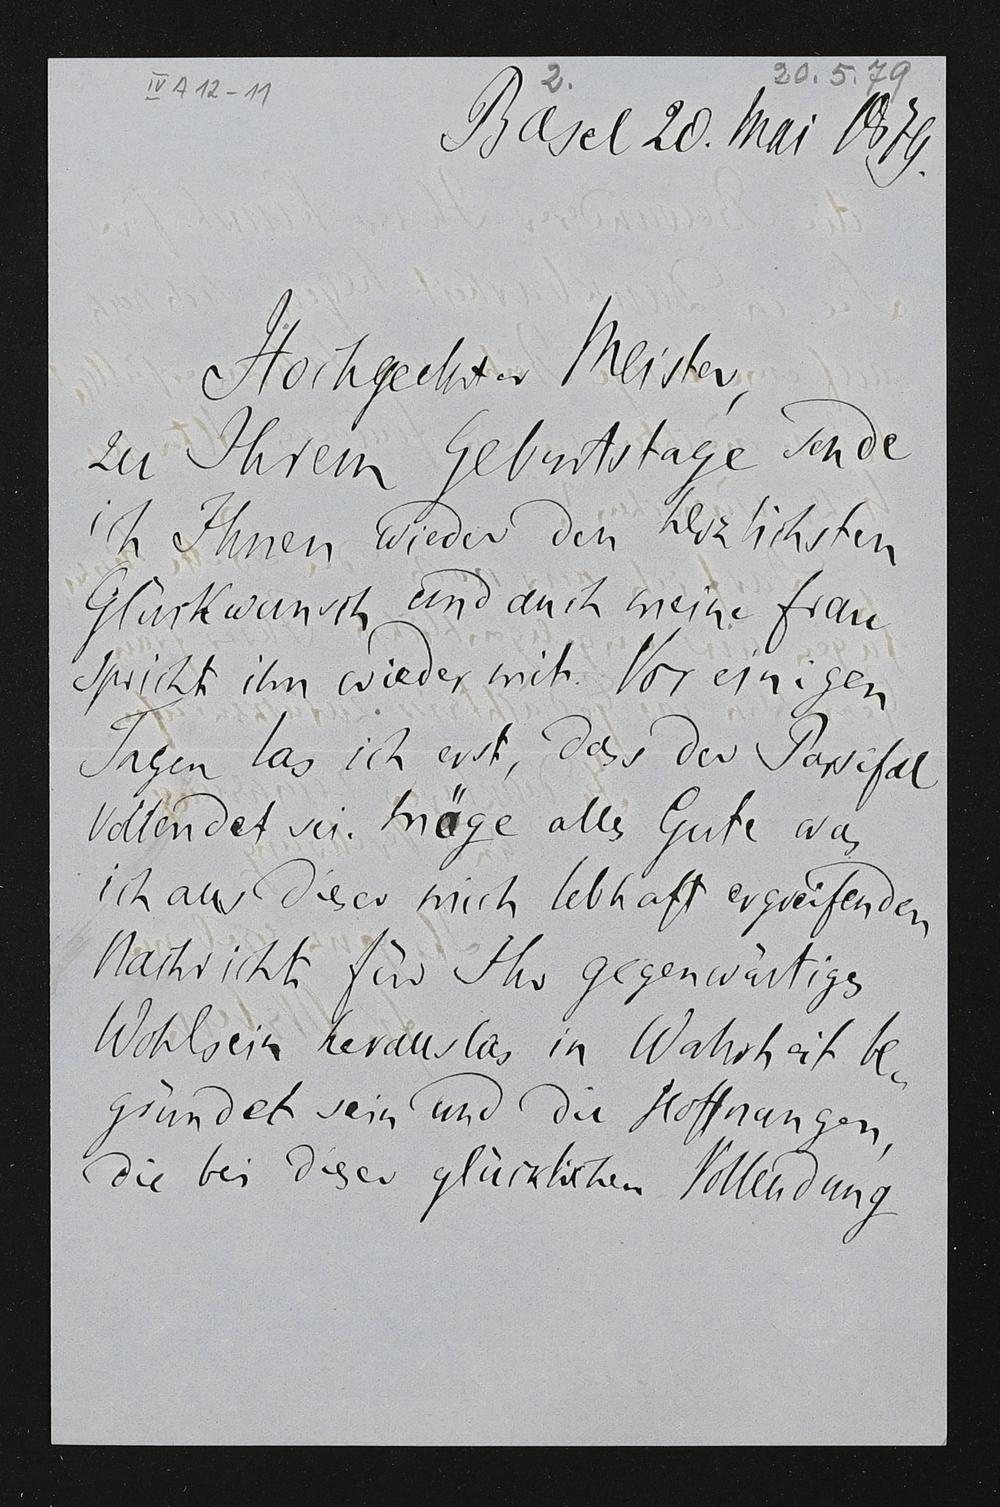 IV A 12 - 11
2.
20. 5. 79
Basel 20. Mai 1879.
Hochgeehrter Meister,
zu Ihrem Geburtstage sende
ich Ihnen wieder den herzlichsten
Glückwunsch und auch meine Frau
spricht ihn wieder mit. Vor einigen
Tagen las ich erst, dass der Parsifal
vollendet sei. Möge alles Gute was
ich aus dieser mich lebhaft ergreifenden
Nachricht für Ihr gegenwärtiges
Wohlsein herauslas in Wahrheit be-
gründet sein und die Hoffnungen,
die bei dieser glücklichen Vollendung